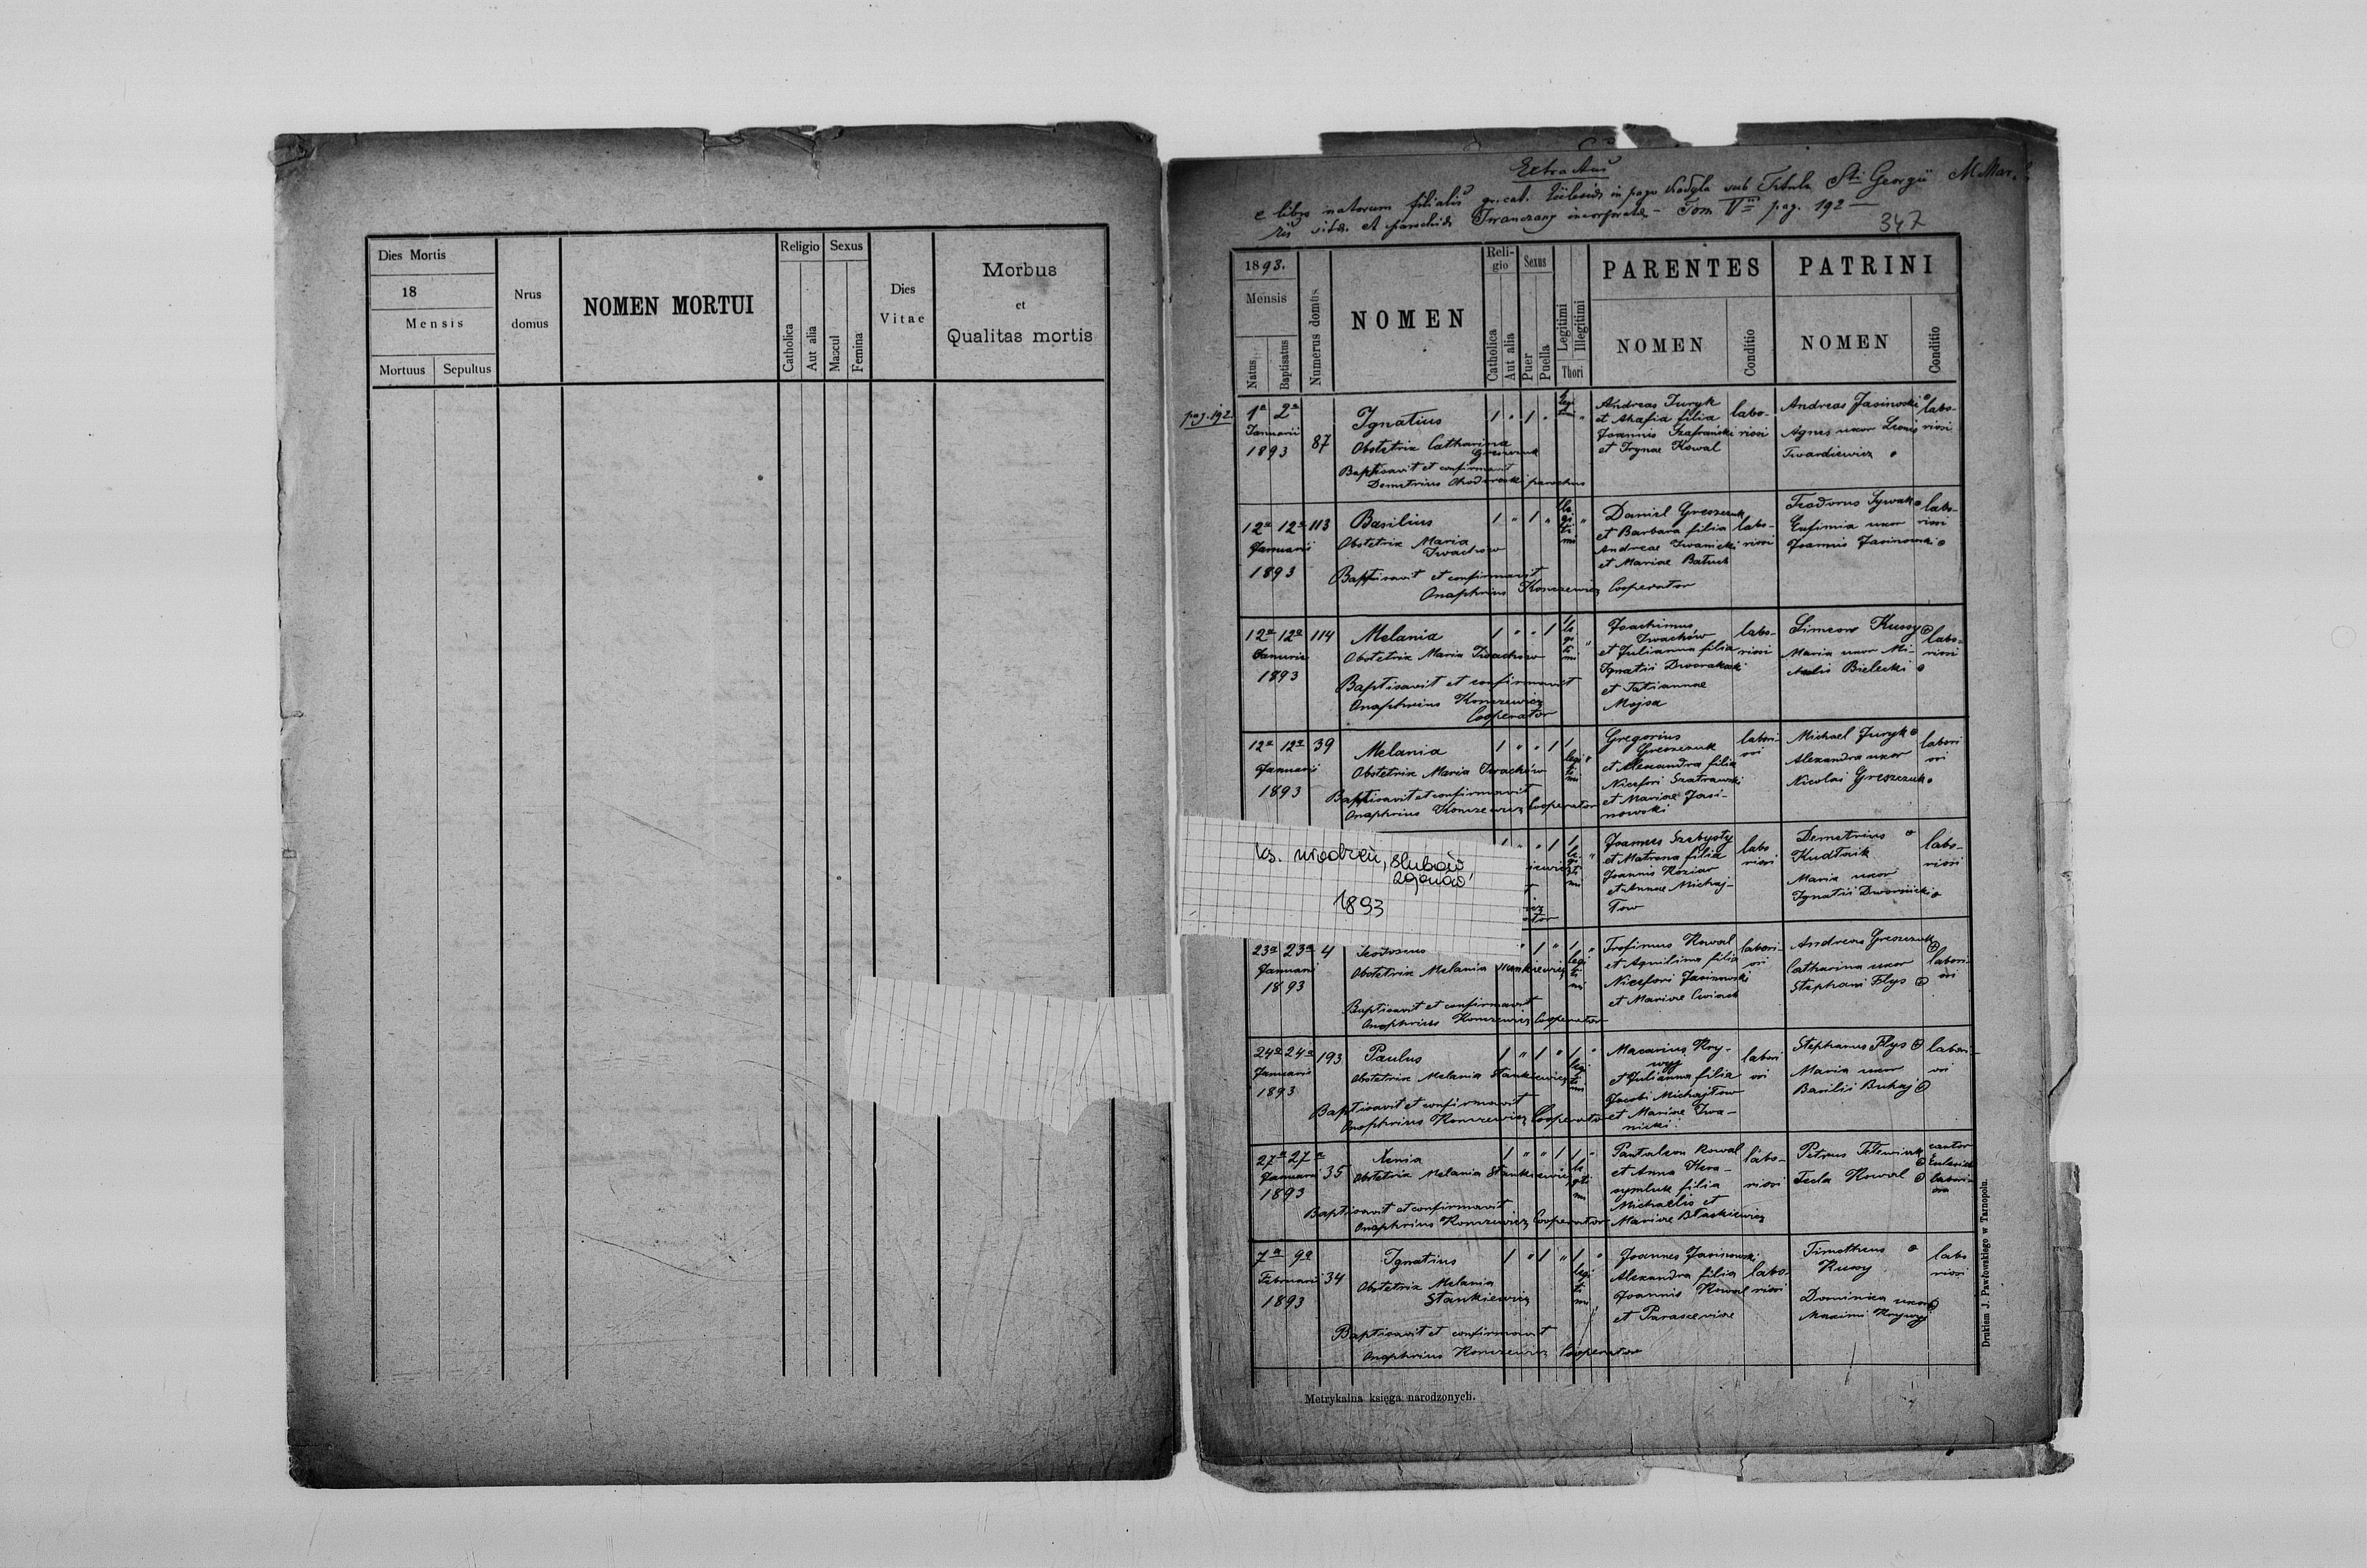 Dies Mortis
18
Mensis
Mortuus
Sepultus
Nrus
domus
NOMEN MORTUI
Religio
Catholica
Aut alia
Sexus
Mascul
Femina
Dies
Vitae
Morbus
et
Qualitas mortis
Extractus
e libro natorum filialis gr. cat. in pago sub Titulo Sti Georgii M. Mar.
Iwanczany incorporatae - Tom V pag. 192
347
1893.
Mensis
Natus
Baptisatus
Numerus domus
NOMEN
Reli-
gio
Catholica
Aut alia
Sexus
Puer
Puella
Legitimi
Illegitimi
Thori
PARENTES
NOMEN
Conditio
PATRINI
NOMEN
Conditio
pag. 192.
1a 2a
Januarii
1893
87
Ignatius
Obstetrix Catharina
Greszczuk
Baptisavit et confirmavit
Demetrius parochus
1 " 1 "
legi
timi "
Andreas Juryk
et Ahafia filia
Joannis Szafrański
et Irynae Kowal
labo-
riosi
Andreas Jasinowski
Agnes uxor Leonis
Twardiewicz
labo-
riosi
12a 12a 113
Januarii
1893
Basilius
Obstetrix Maria
Iwachow
Baptisavit et confirmavit
Onaphrius Konczewicz Cooperator
1 " 1 "
le
gi
ti
mi
Daniel Greszczuk
et Barbara filia
Andreae Iwanicki
et Mariae Batuch
labo-
riosi
Teodorus Sywak
Eufimia uxor
Joannis Jasinowski
labo-
riosi
12a 12a 114
Januarii
1893
Melania
Obstetrix Maria Iwachow
Baptisavit et confirmavit
Onaphrius Konczewicz
Cooperator
1 " " 1
le
gi
ti
mi
Joachimus
Iwachów
et Julianna filia
Ignatii Dworakski
et Tatiannae
Mojsa
labo-
riosi
Simeon Kussy
Maria uxor Mi-
Bielecki
labo-
riosi
12a 12a 39
Januarii
1893
Melania
Obstetrix Maria Iwachów
Baptisavit et confirmavit
Onaphrius Konczewicz Cooperator
1 " " 1 1
legi
ti
mi
Gregorius
Greszczuk
et Alexandra filia
Nicefori Szatrawski
et Mariae Jasi-
nowski
labori-
osi
Michael Juryk
Alexandra uxor
Nicolai Greszczuk
labori
osi
ks. urodzeń, ślubów
zgonów
1893
Joannes Szebysty
et Matrona filia
Joannis Koziar
et Annae Michaj-
łow
labo
riosi
Demetrius
Kudłaik
Maria uxor
Ignatii Dwornicki
labo-
riosi
23a 23a 4
Januarii
1893
Obstetrix Melania Stankiewicz
Baptisavit et confirmavit
Onaphrius Konczewicz Cooperator
" 1 " 1 "
legi
ti
mi
Trofimus Kowal
et Aquilina filia
Nicefori Jasinowski
et Mariae
labori-
osi
Andreas Greszczuk
Catharina uxor
Stephani Flys
labori-
osi
24a 24a 193
Januarii
1893
Paulus
Obstetrix Melania Stankiewicz
Baptisavit et confirmavit
Onaphrius Konczewicz Cooperator
1 " 1 " 1 "
legi
ti
mi
Macarius Kry-
wyj
et Julianna filia
Jacobi Michajłow
et Mariae Iwa-
nicki
labori
osi
Stephanus Flys
Maria uxor
Basilii Buhaj
labori-
osi
27a 27a
Januarii
1893
35
Xenia
Obstetrix Melania Stankiewicz
Baptisavit et confirmavit
Onaphrius Konczewicz Cooperator
1 " " 1 1 "
le
giti
mi
Pantaleon Kowal
et Anna Hera-
symluk filia
Michaelis et
Mariae Błaskiewicz
labo-
riosi
Petrus
Tecla Kowal
cantor
labori-
osa
7a 9a
Februarii
1893
34
Ignatius
Obstetrix Melania
Stankiewicz
Baptisavit et confirmavit
Onaphrius Konczewicz Cooperator
1 " 1 " 1 "
legi
ti
mi
Joannes Jasinowski
Alexandra filia
Joannis Kowal
et Parasceviae
labo-
riosi
Timotheus
Kussy
Dominica uxor
Maximi Krywyj
labo
riosi
Metrykalna księga narodzonych.
Drukiem J. Pawłowskiego w Tarnopolu.